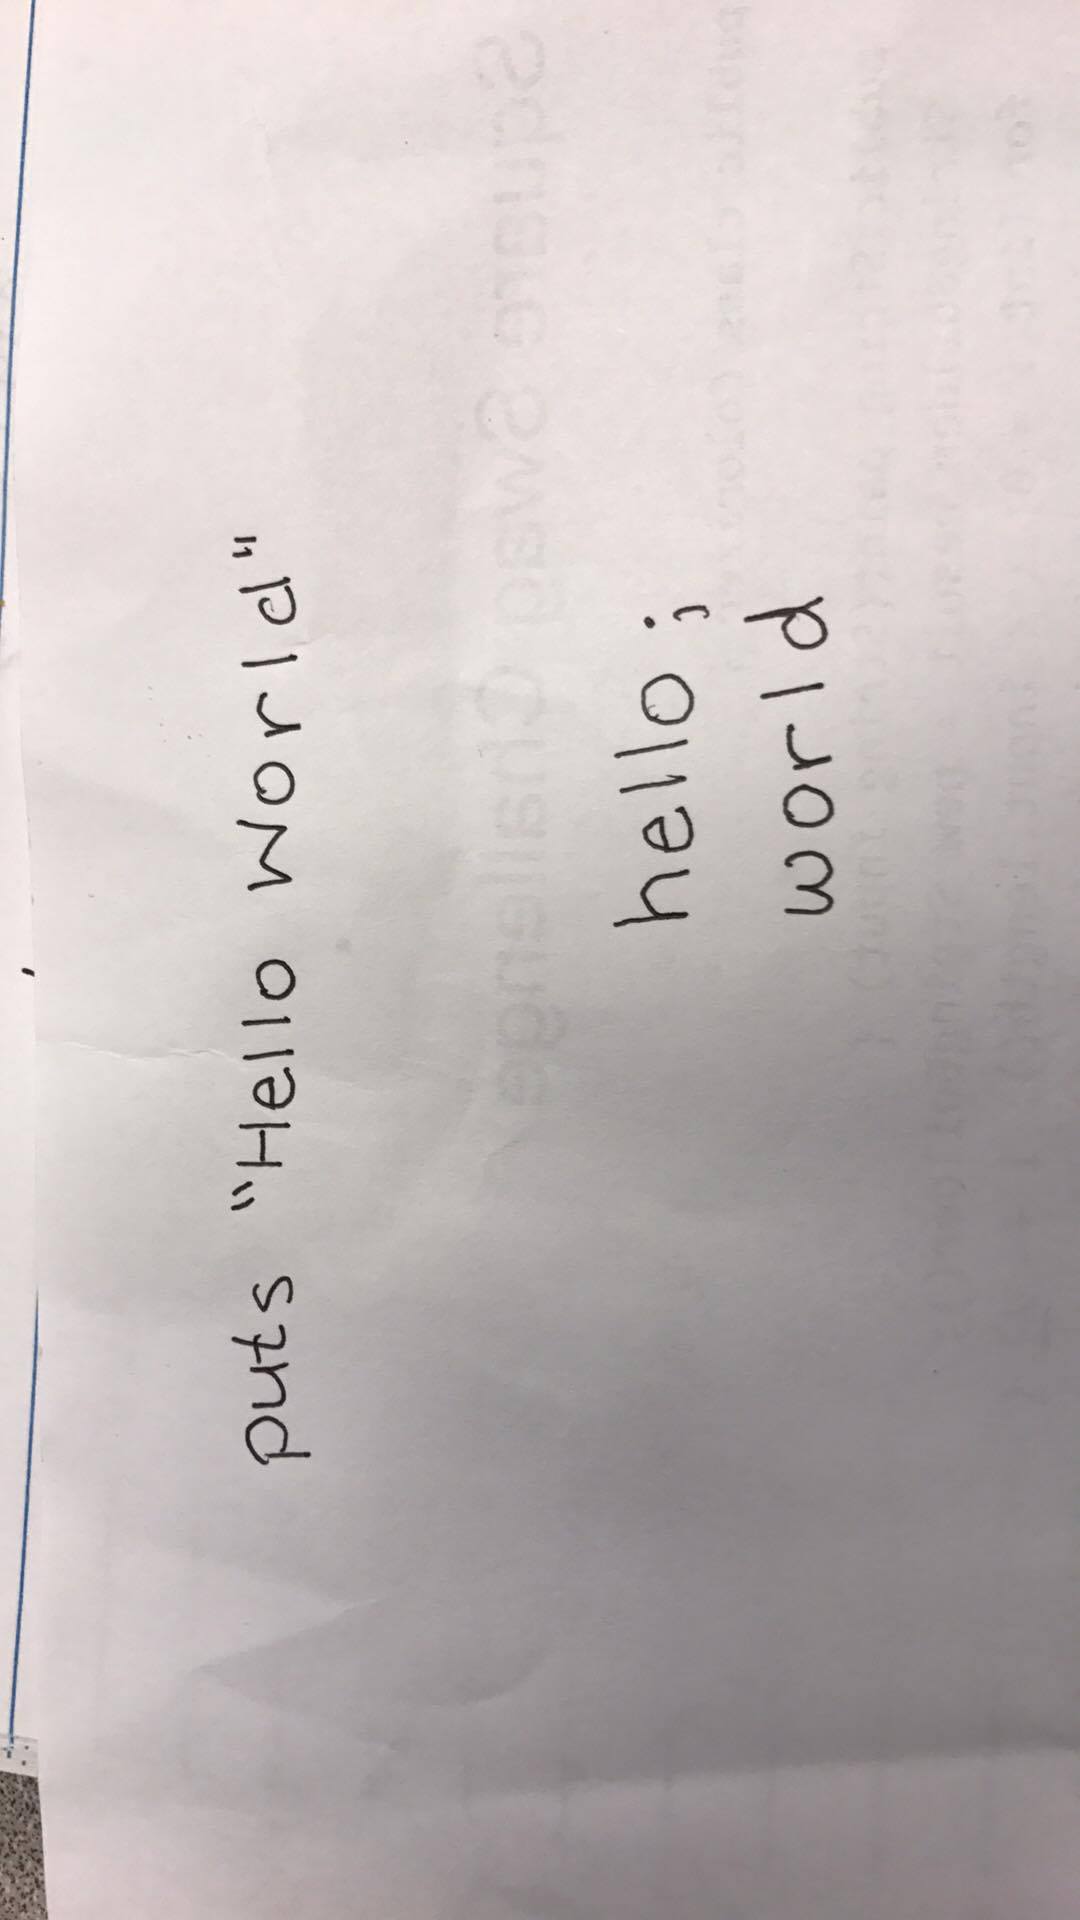 puts "Hello World"
hello;
world